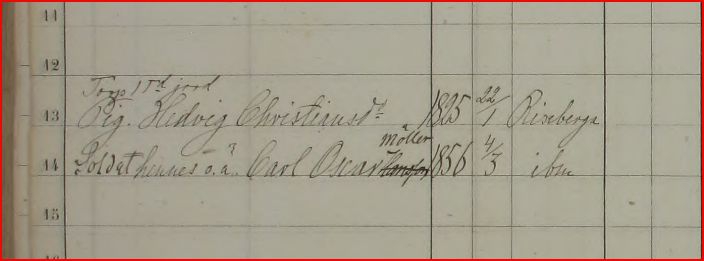 11
12
Torp 1 Td jord
13 Pig. Hedvig Christiansdr 1825 22/1 Riseberga
Möller
14 Soldat hennes o.ä. Carl Oscar 1856 4/3 ibm
15